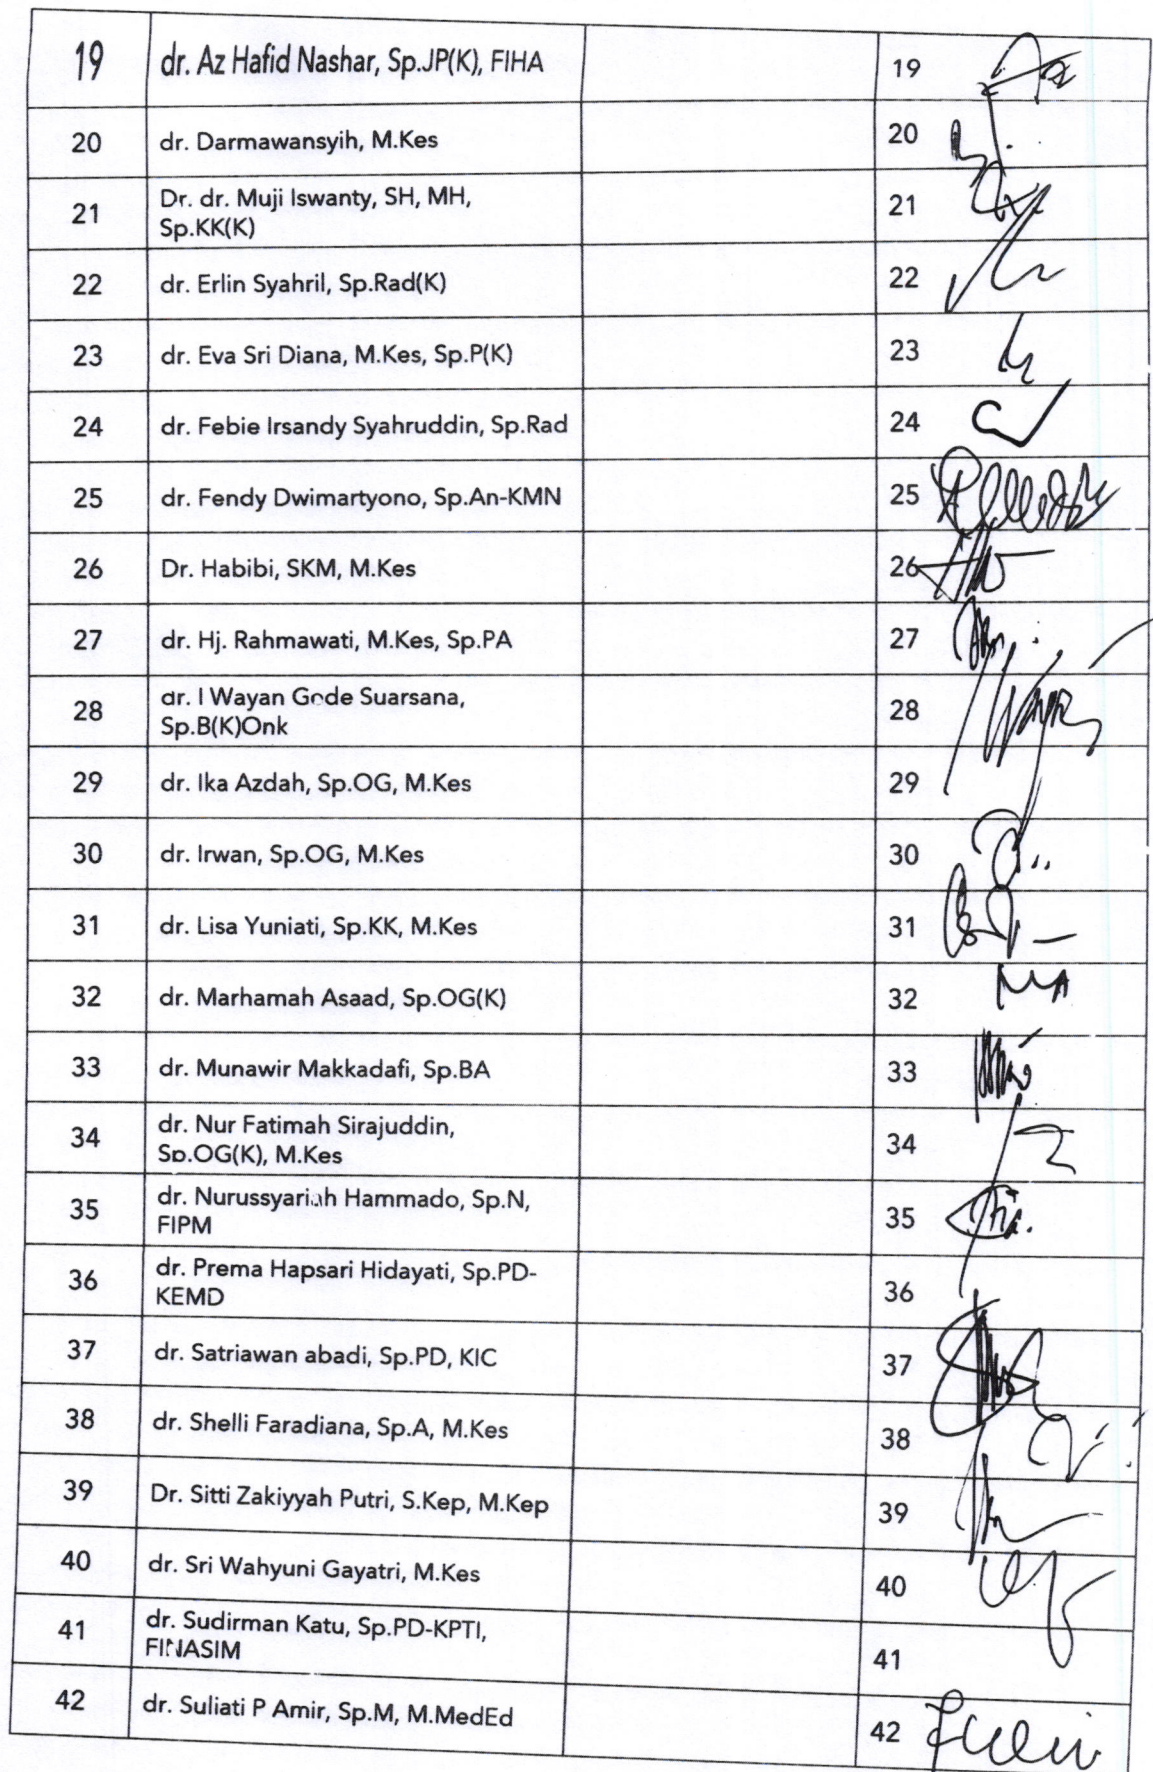 19 dr. Az Hafid Nashar, Sp.JP(K), FIHA 19
20 dr. Darmawansyih, M.Kes 20
21 Dr. dr. Muji Iswanty, SH, MH, 21
Sp.KK(K)
22 dr. Erlin Syahril, Sp.Rad(K) 22
23 dr. Eva Sri Diana, M.Kes, Sp.P(K) 23
24 dr. Febie Irsandy Syahruddin, Sp.Rad 24
25 dr. Fendy Dwimartyono, Sp.An-KMN 25
26 Dr. Habibi, SKM, M.Kes 26
27 dr. Hj. Rahmawati, M.Kes, Sp.PA 27
28 dr. I Wayan Gede Suarsana, 28
Sp.B(K)Onk
29 dr. Ika Azdah, Sp.OG, M.Kes 29
30 dr. Irwan, Sp.OG, M.Kes 30
31 dr. Lisa Yuniati, Sp.KK, M.Kes 31
32 dr. Marhamah Asaad, Sp.OG(K) 32
33 dr. Munawir Makkadafi, Sp.BA 33
34 dr. Nur Fatimah Sirajuddin, 34
Sp.OG(K), M.Kes
35 dr. Nurussyariah Hammado, Sp.N, 35
FIPM
36 dr. Prema Hapsari Hidayati, Sp.PD- 36
KEMD
37 dr. Satriawan abadi, Sp.PD, KIC 37
38 dr. Shelli Faradiana, Sp.A, M.Kes 38
39 Dr. Sitti Zakiyyah Putri, S.Kep, M.Kep 39
40 dr. Sri Wahyuni Gayatri, M.Kes 40
41 dr. Sudirman Katu, Sp.PD-KPTI, 41
FINASIM
42 dr. Suliati P Amir, Sp.M, M.MedEd 42